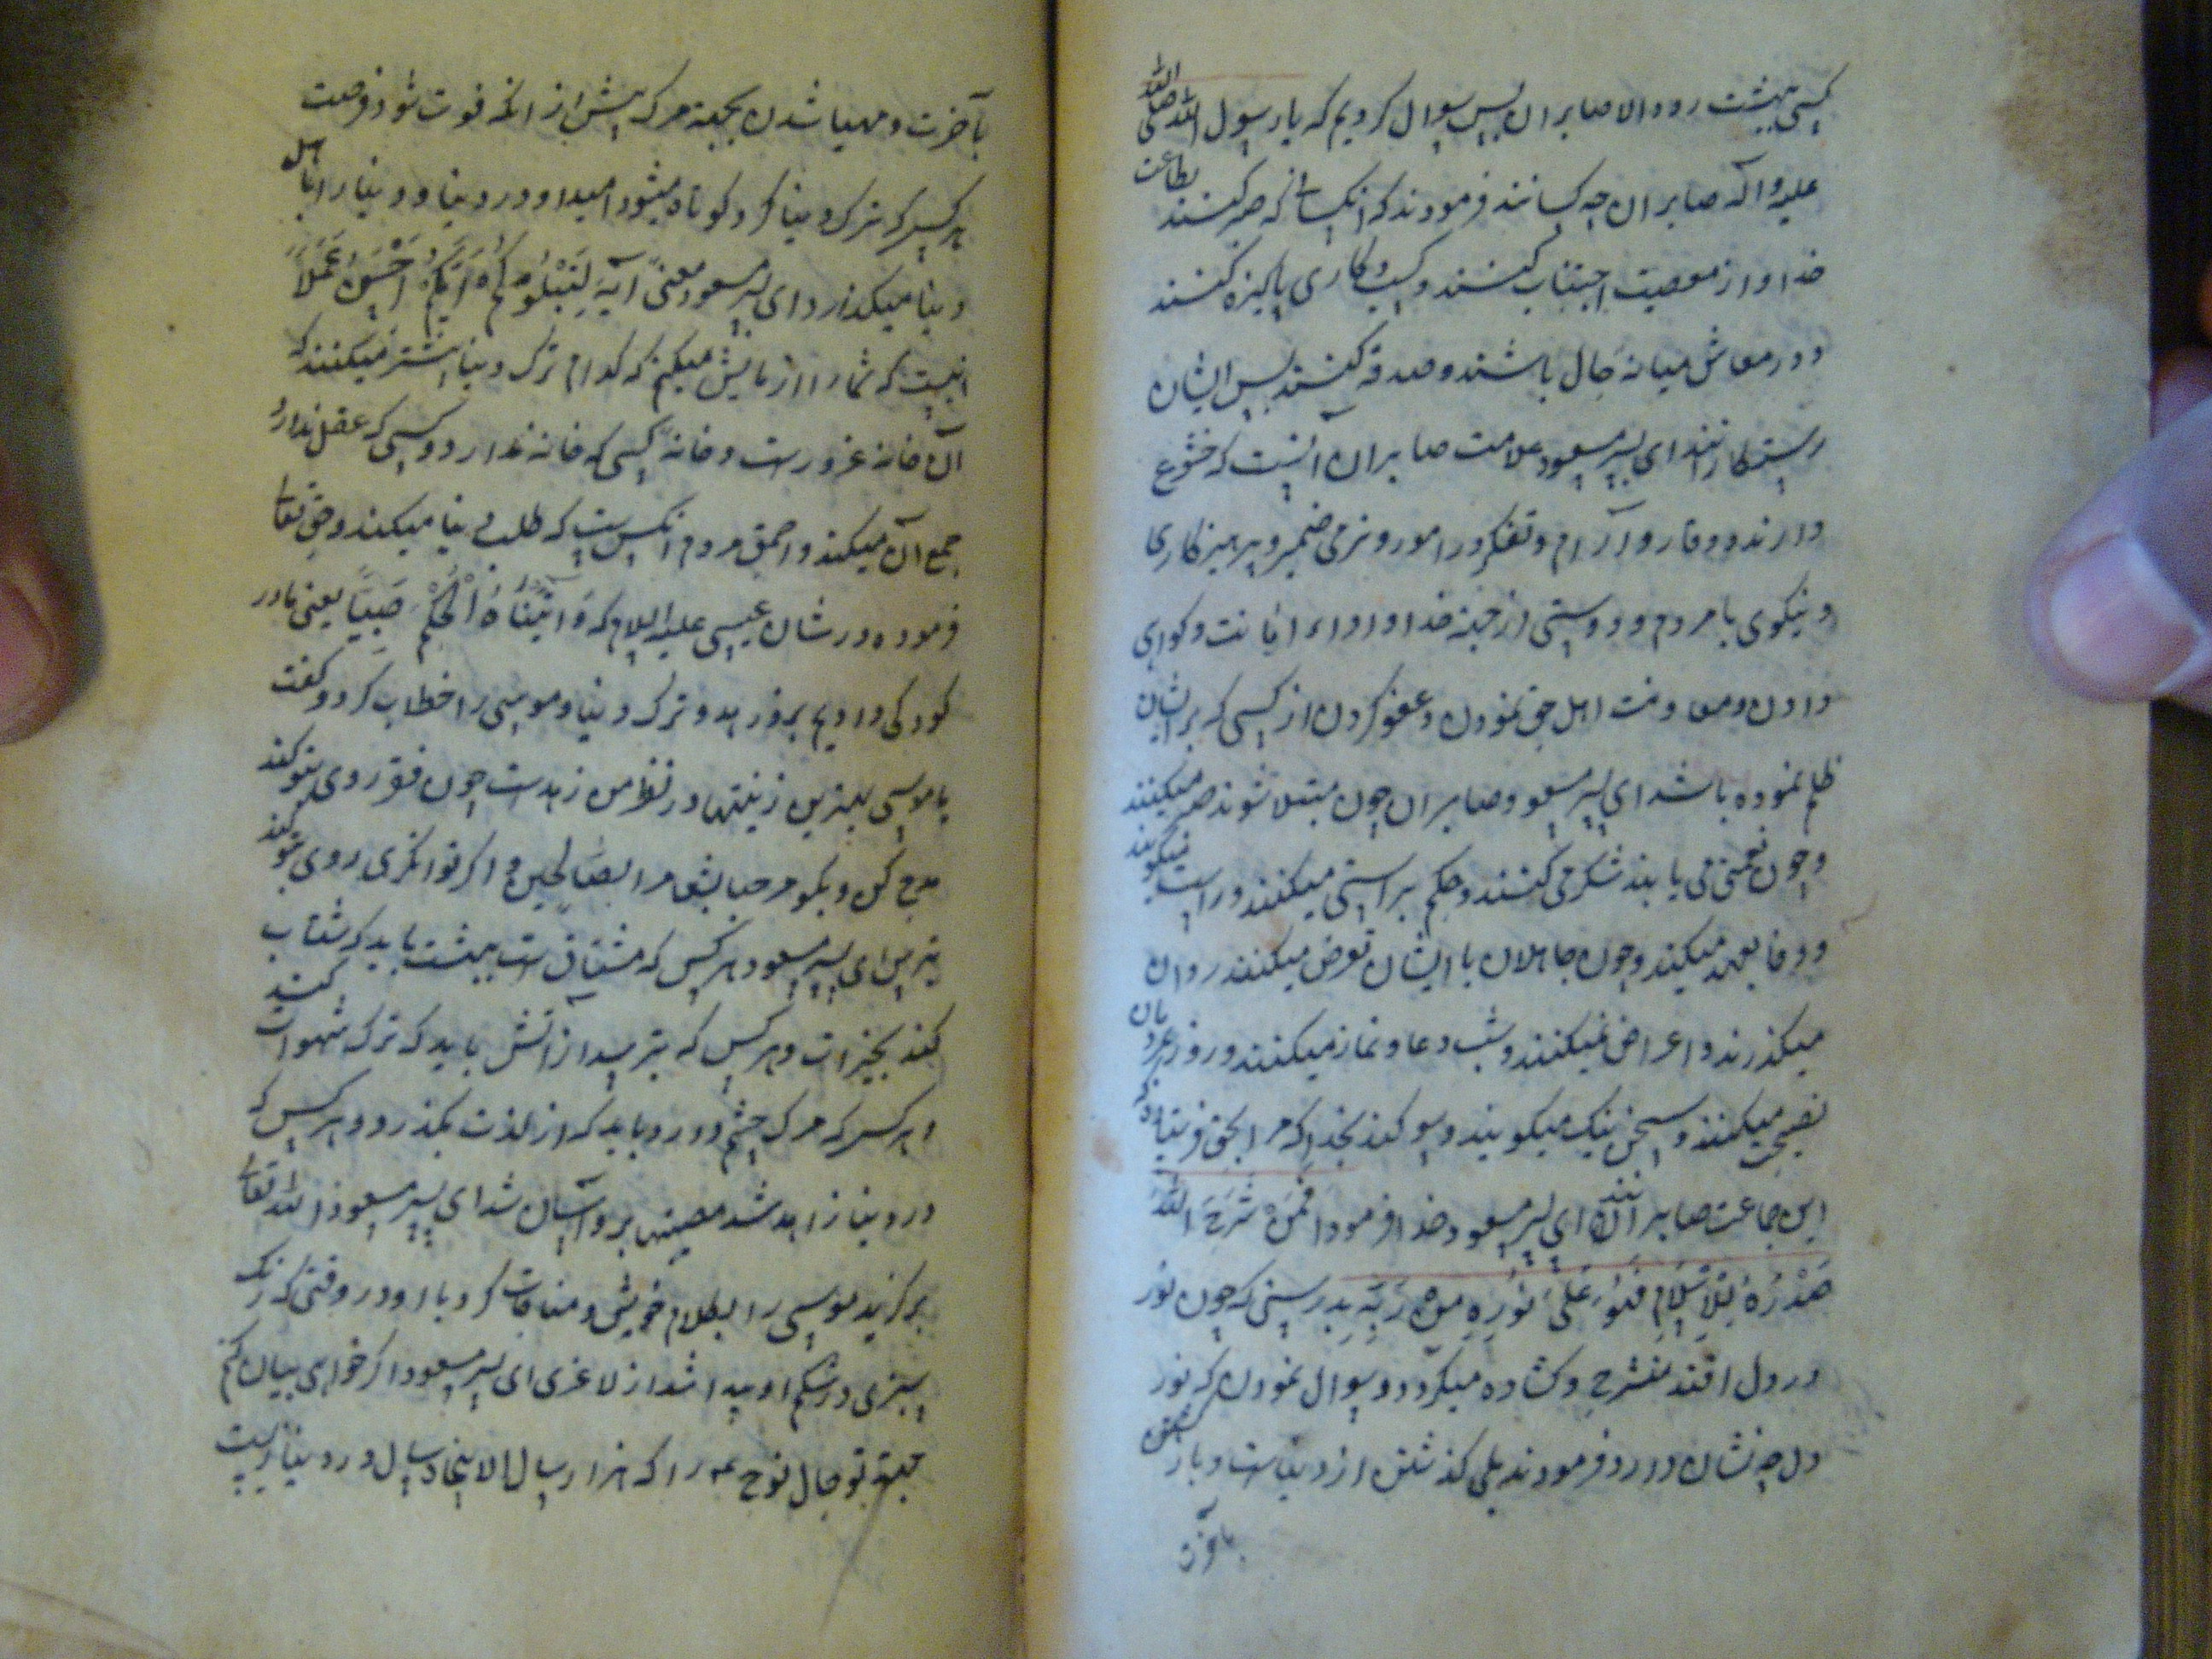 کسی بهشت رود الا صابران پس سوال کردیم که یا رسول الله صلی الله
علیه و آله صابران چه کسانند فرمودند که آنکسانی که صبر کنند بطاعت
خدا و از معصیت اجتناب کنند و کسب و کاری پاکیزه کنند
و در معاش میانه حال باشند و صدقه کنند پس ایشان
رستکارانند ای پسر مسعود علامت صابران آنست که خشوع
دارند و وقار و آرام و تفکر در امور و نرمی ضمیر و پرهیزکاری
و نیکوی با مردم و دوستی از جهة خدا و اداء امانت و کواهی
دادن و معاونت اهل حق نمودن و عفو کردن از کسی که بر ایشان
ظلم نموده باشد ای پسر مسعود صابران چون مبتلا شوند صبر میکنند
و چون نعمتی می یابند شکر می کنند و حکم براستی میکنند و راست میکویند
و وفا بعهد میکنند و چون جاهلان با ایشان تعرض میکنند روان
میکذرند و اعراض میکنند و شب دعا و نماز میکنند و روز بمردمان
نصیحت میکنند و سخن نیک میکویند و سوکند بخدا که مرا بحق فرستاده که
این جماعت صابرانند ای پسر مسعود خدا فرمود افمن شَرَحَ الله
صَدْرَهُ لِلاِسْلامِ فَهُوَ عَلَیٰ نُورِهِ مِن رَبِّهِ بدرستی که چون نور
در دل افتد منشرح و کشاده میکردد و سوال نمودن که نور
دل چه نشان دارد فرمودند بلی کذشتن از دنیاست و بازکشتن
بآخرت
بآخرت و مهیا شدن بجهة مرک پیش از انکه فوت شود فرصت
هر کس که ترک دنیا کرد کوتاه میشود امید او در دنیا و دنیا را باهل
دنیا میکذارد ای پسر مسعود معنی آیة لِیَبْلُوَکُمْ اَیُّکُمْ اَحْسَنُ عَمَلاً
اینست که شما را آزمایش میکنم که کدام ترک دنیا بیشتر میکنند که
آن خانه غرورست و خانه کسی که خانه ندارد و کسی که عقل ندارد
جمع آن میکند و احمق مردم آنکس است که طلب دنیا میکند و حق تعالی
فرموده در شان عیسی علیه السلام که وَ آتَیْنَاهُ الْحُکْمَ صَبِیّاً یعنی ما در
کودکی دادیم برو زهد و ترک دنیا و موسی را خطاب کرد و گفت
یا موسی بهترین زینتها در نظر من زهدست چون فقر روی بتو کند
مدح کن و بکو مرحبا بشعار الصالحین و اکر توانکری روی بتو کند
بترس ای پسر مسعود هر کس که مشتاق است بهشت باید که شتاب
کند بخیرات و هر کس که بترسد از آتش باید که ترک شهوات کند
و هر کس که مرک چشم دارد باید که از لذت بکذرد و هر کس که
در دنیا زاهد شد مصیبتها برو آسان شد ای پسر مسعود الله تعالی
برکزید موسی را بکلام خویش و مناجات کرد با او در وقتی که رنک
سبزی در شکم او پیدا شد از لاغری ای پسر مسعود اکر خواهی بیان کنم
بجهة تو حال نوح عم را که هزار سال الا پنجاه سال در دنیا زیست